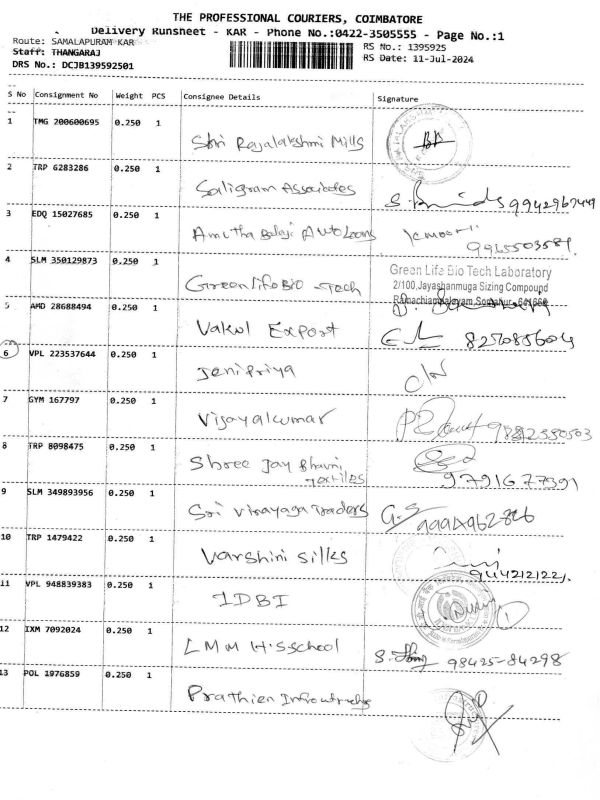 THE PROFESSIONAL COURIERS, COIMBATORE
Delivery Runsheet - KAR - Phone No.:0422-3505555 - Page No.:1
Route: SAMALAPURAM KAR
RS No.: 1395925
Staff: THANGARAJ
RS Date: 11-Jul-2024
DRS No.: DCJB139592501
S No Consignment No Weight PCS Consignee Details Signature
1 TMG 200600695 0.250 1
Shri Rajalakshmi Mills
2 TRP 6283286 0.250 1
Saligram Associates 9942967449
3 EDQ 15027685 0.250 1
Amutha Balaji Auto Loans
9965503581.
4 SLM 350129873 0.250 1
Green life Bio Tech
Green Life Bio Tech Laboratory
2/100,Jayashanmuga Sizing Compound
5 AMD 28688494 0.250 1
Vakul Export 8250885604
6 VPL 223537644 0.250 1
Jenipriya
7 GYM 167797 0.250 1
Vijayakumar
8 TRP 8098475 0.250 1
Shree Jay Bhavni
Textiles 9791677391
9 SLM 349893956 0.250 1
Sri Vinayaga Traders G.S 9994962826
10 TRP 1479422 0.250 1
Varshini Silks
9442121221.
11 VPL 948839383 0.250 1
IDBI
12 IXM 7092024 0.250 1
LMM H.S school 98425-84298
13 POL 1976859 0.250 1
Prathien